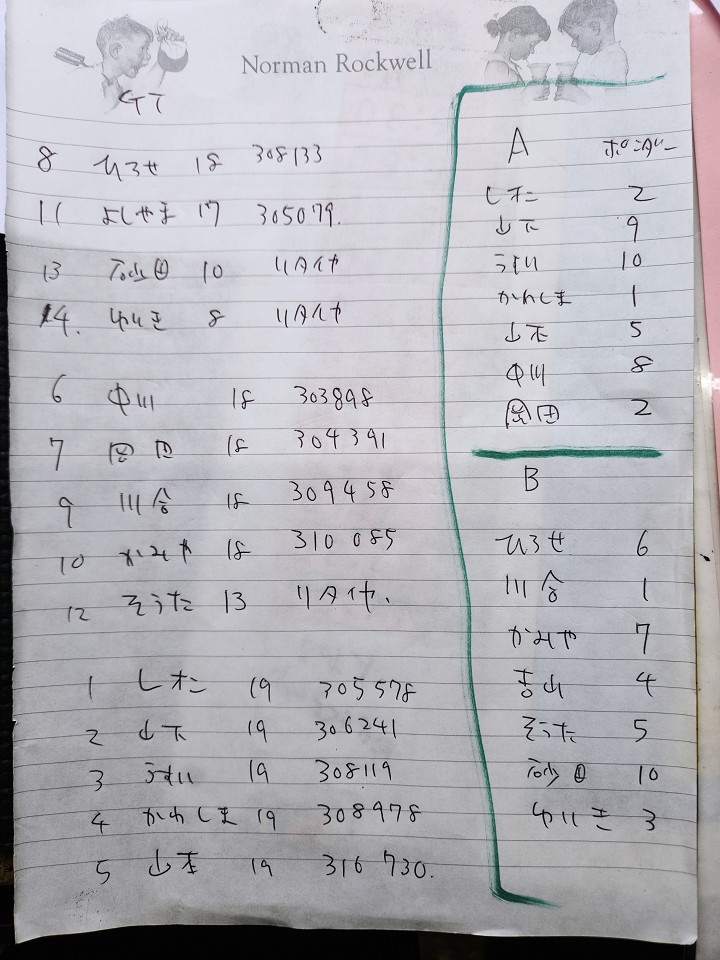 Norman Rockwell
GT
8 ひろせ 18 308133
11 よしやま 17 305079.
13 砂田 10 リタイヤ
14. ゆいき 8 リタイヤ
6 中川 18 303898
7 岡田 18 304391
9 川合 18 309458
10 かみや 18 310 085
12 そうた 13 リタイヤ.
1 レオニ 19 305578
2 山下 19 306241
3 うすい 19 308119
4 かわしま 19 308978
5 山本 19 316 730.
A ポンダー
レオニ 2
山下 9
うすい 10
かわしま 1
山本 5
中川 8
岡田 2
B
ひろせ 6
川合 1
かみや 7
吉山 4
そうた 5
砂田 10
ゆいき 3